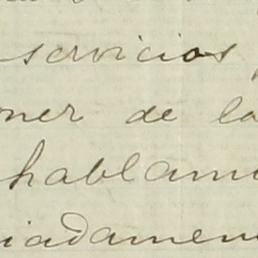 servicios
ner de la
hablam
iadamen